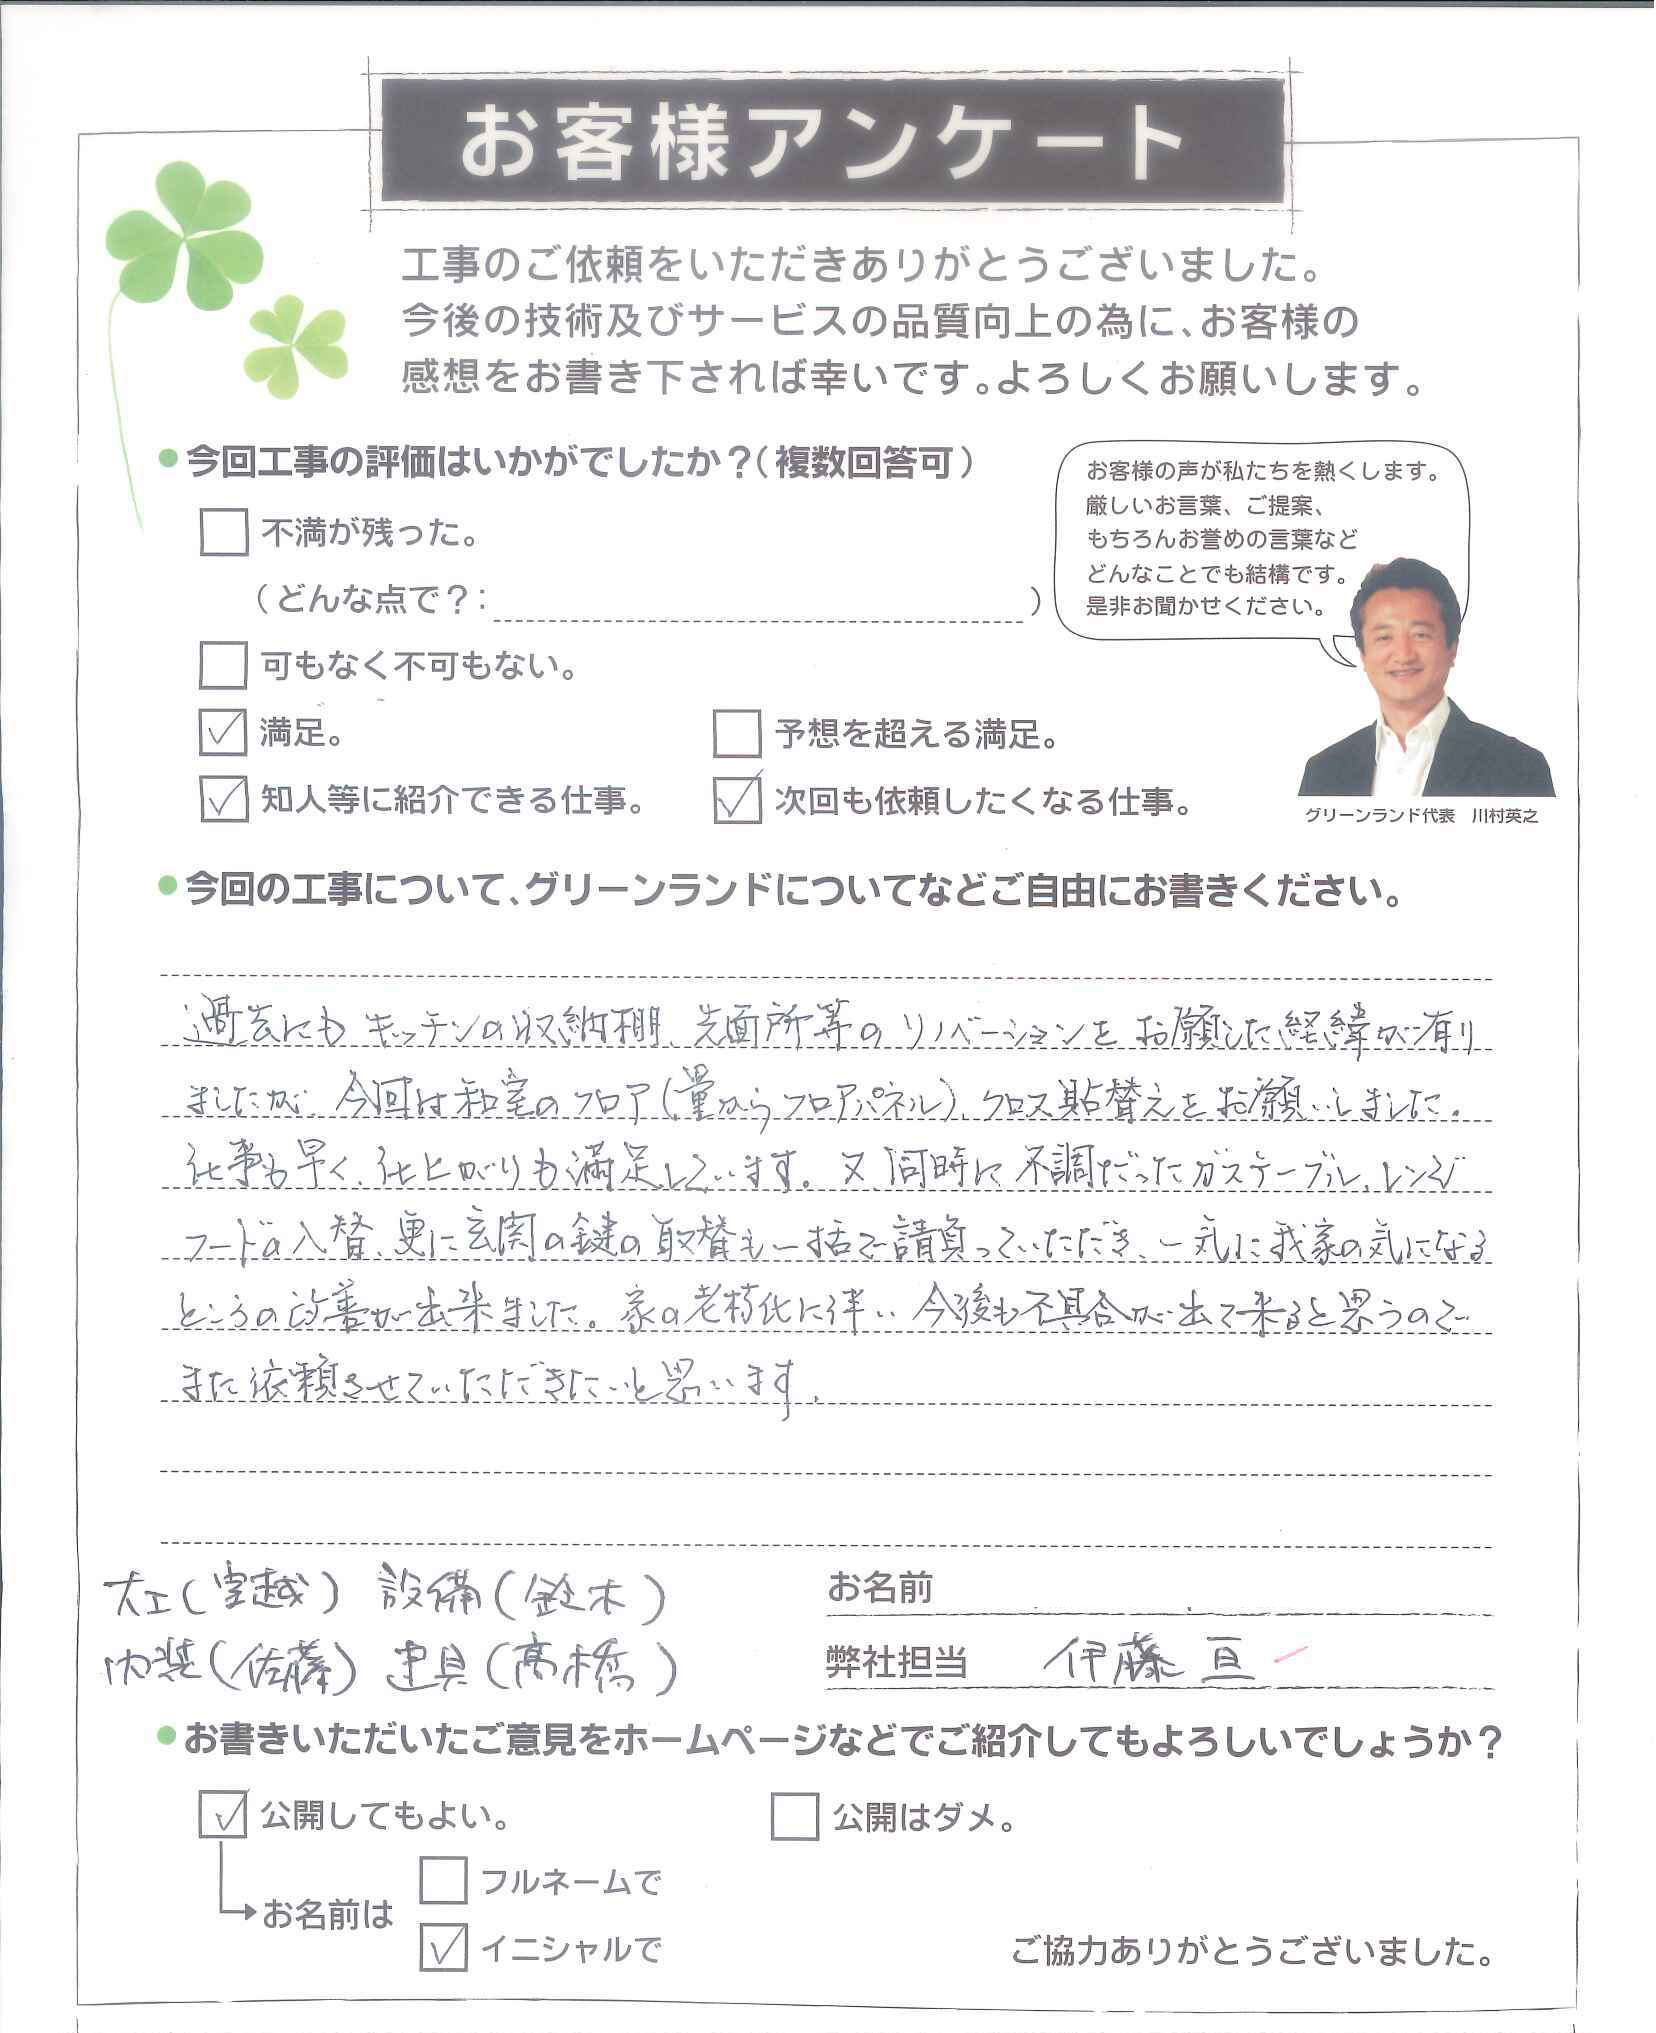 お客様アンケート
工事のご依頼をいただきありがとうございました。
今後の技術及びサービスの品質向上の為に、お客様の
感想をお書き下されば幸いです。よろしくお願いします。
今回工事の評価はいかがでしたか？（複数回答可）
不満が残った。
（どんな点で？：　）
可もなく不可もない。
満足。
予想を超える満足。
知人等に紹介できる仕事。
次回も依頼したくなる仕事。
お客様の声が私たちを熱くします。
厳しいお言葉、ご提案、
もちろんお誉めの言葉など
どんなことでも結構です。
是非お聞かせください。
グリーンランド代表　川村英之
今回の工事について、グリーンランドについてなどご自由にお書きください。
過去にもキッチンの収納棚、洗面所等のリノベーションをお願いした経緯が有り
ましたが、今回は和室のフロア（畳からフロアパネル）、クロス貼替えをお願いしました。
仕事も早く、仕上がりも満足しています。又、同時に不調だったガステーブル、レンジ
フードの入替、更に玄関の鍵の取替も一括で請負っていただき、一気に我家の気になる
ところの改善が出来ました。家の老朽化に伴い今後も不具合が出て来ると思うので
また依頼させていただきたいと思います。
大工（宮越）　設備（鈴木）
内装（佐藤）　建具（高橋）
お名前
弊社担当　伊藤 亘
お書きいただいたご意見をホームページなどでご紹介してもよろしいでしょうか？
公開してもよい。
公開はダメ。
お名前は
フルネームで
イニシャルで
ご協力ありがとうございました。